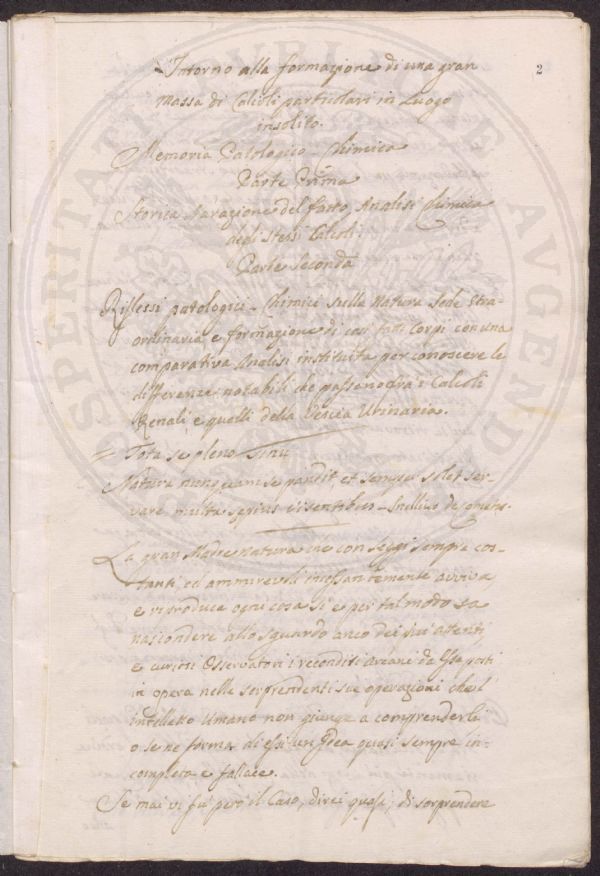 2
Intorno alla formazione di una gran
Massa di Calcoli particolari in Luogo
insolito.
Memoria Patologico-Chimica
Parte Prima
Storica Narazione del fatto, Analisi Chimica
degli Stessi Calcoli.
Parte Seconda
Riflessi patologici-Chimici sulla Natura Sede Stra-
ordinaria e formazione di così fatti Corpi con una
comparativa Analisi instituita per conoscere le
differenze notabili che passano frà i Calcoli
Renali, e quelli della Vescica Urinaria.
= Tota se pleno Sinu
Natura nunquam se pandit et semper solet ser-
vare multa sepius
La gran Madre natura che con leggi sempre cos-
tanti, ed ammirevoli incessantemente avviva,
e riproduce ogni cosa si e per tal modo sa
nascondere allo sguardo anco dei più attenti
e curiosi Osservatori i reconditi arcani da Essa posti
in opera nelle sorprendenti sue operazioni che l'
intelletto Umano non giunge a comprenderli
o se ne forma di essi un Idea quasi sempre in-
completa e fallace.
Se mai vi fu però il Caso, direi quasi, di sorprendere
PROSPERITATI PUBLICAE AUGENDAE